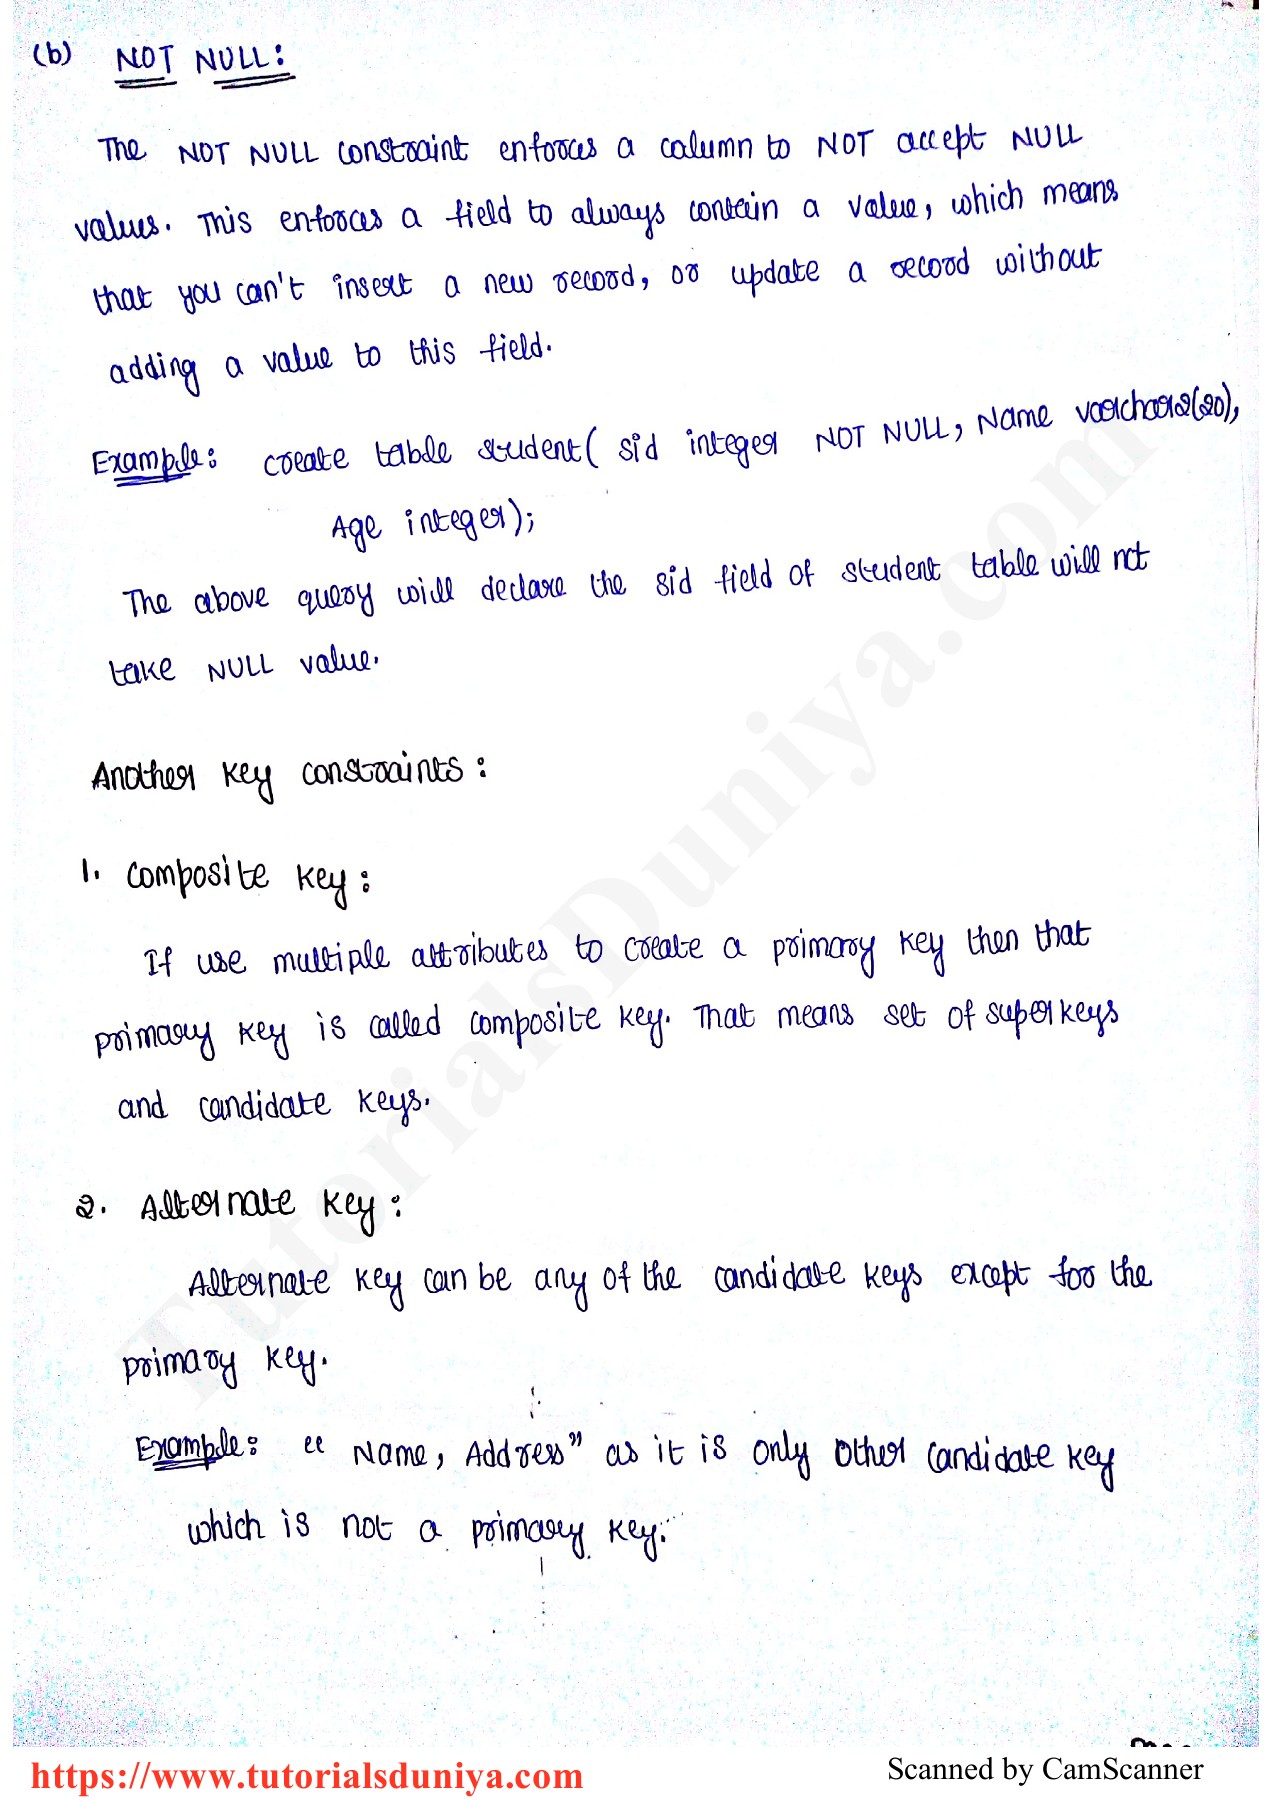 (b) NOT NULL:
The NOT NULL constraint enforces a column to NOT accept NULL
values. This enforces a field to always contain a value, which means
that you can't insert a new record, or update a record without
adding a value to this field.
Example: create table student( sid integer NOT NULL, Name varchar2(20),
Age integer);
The above query will declare the sid field of student table will not
take NULL value.
Another key constraints:
1. Composite key:
If use multiple attributes to create a primary key then that
primary key is called composite key. That means set of super keys
and candidate keys.
2. Alternate key:
Alternate key can be any of the candidate keys except for the
primary key.
Example: "Name, Address" as it is only other candidate key
which is not a primary key.
TutorialsDuniya.com
https://www.tutorialsduniya.com
Scanned by CamScanner